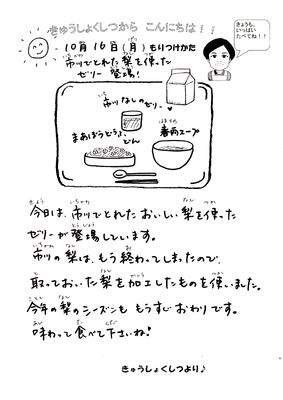 きゅうしょくしつから こんにちは!!
きょうも、
いっぱい
たべてね!!
10月16日(月)もりつけかた
市川でとれた梨を使った
ゼリー 登場!
市川なしのゼリー♥
まあぼうどうふ
どん
春雨スープ
今日は、市川でとれたおいしい梨を使った
ゼリーが登場しています。
市川の梨は、もう終わってしまったので、
取っておいた梨を加工したものを使いました。
今年の梨のシーズンも もうすぐおわりです。
味わって食べて下さいね!
きゅうしょくしつより♪